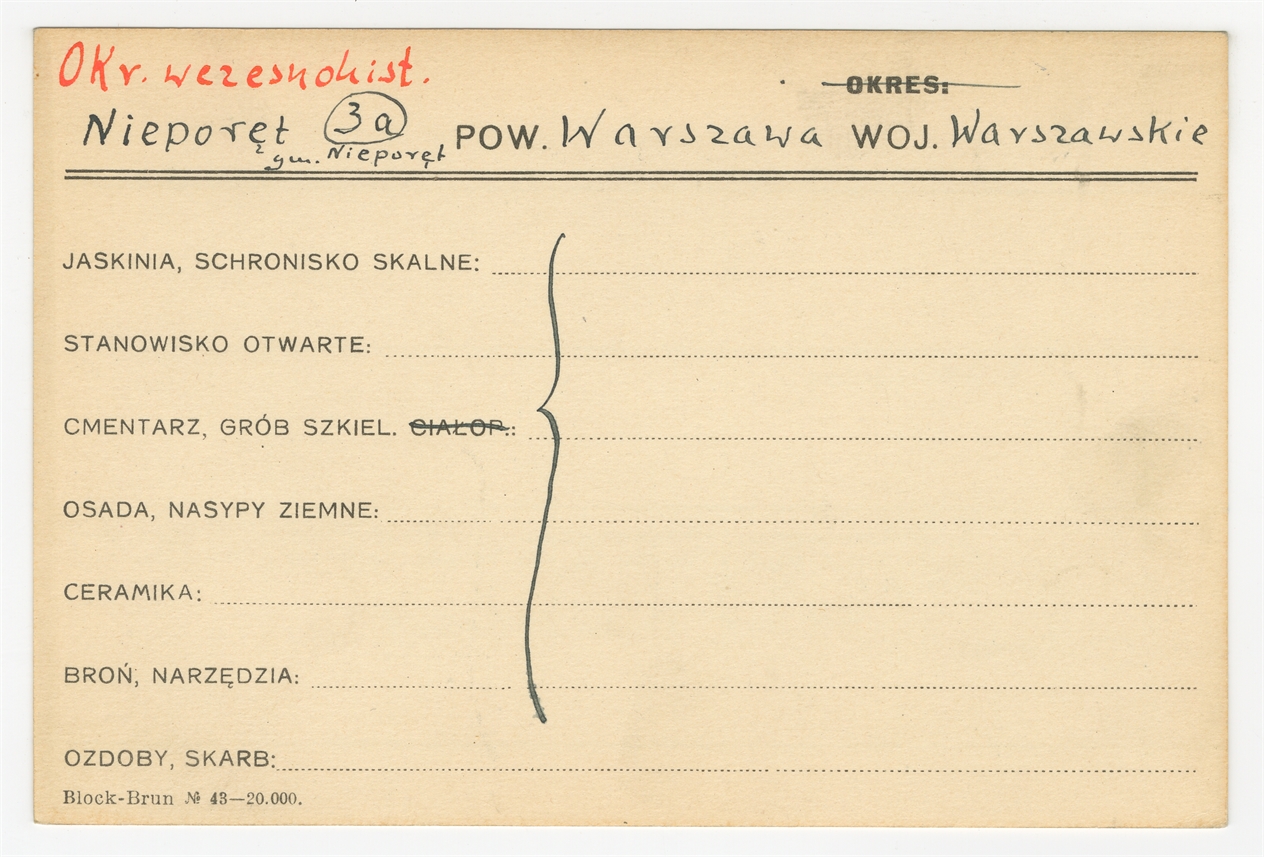 Okr. wczesnohist.
OKRES:
Nieporęt 3a POW. Warszawa WOJ. Warszawskie
gm. Nieporęt
JASKINIA, SCHRONISKO SKALNE:
STANOWISKO OTWARTE:
CMENTARZ, GRÓB SZKIEL. CIAŁOP.:
OSADA, NASYPY ZIEMNE:
CERAMIKA:
BROŃ, NARZĘDZIA:
OZDOBY, SKARB:
Block-Brun № 43—20.000.